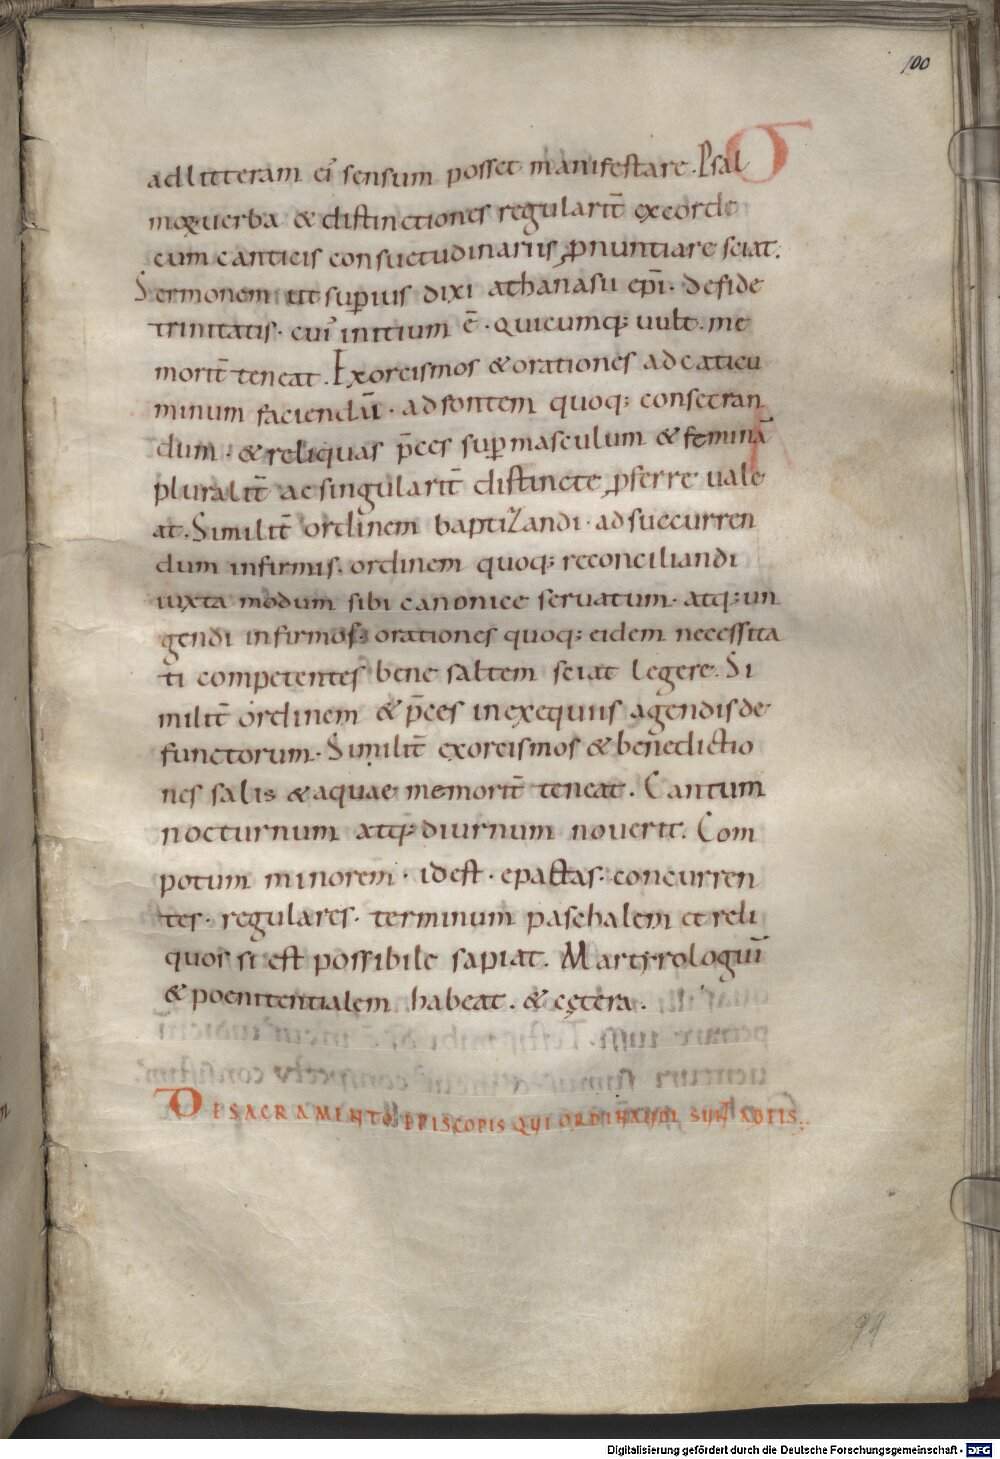 100
ad litteram ei᾽ sensum posset manifestare. Psal
moꝝ uerba & distinctiones regularit̄ ex corde
cum canticis consuetudinariis ꝓnuntiare sciat.
Sermonem ut suꝑius dixi athanasii ep̄i. de fide
trinitatis. cui᾽ initium ē. quicumq; uult. me
morit̄ teneat. Exorcismos & orationes ad caticu
minum faciendū. ad fontem quoq; consecran
dum. & reliquas p̄ces suꝑ masculum & feminā
pluralit̄ ac singularit̄ distincte ꝓferre uale
at. Similit̄ ordinem baptizandi. ad succurren
dum infirmis. ordinem quoq; reconciliandi
iuxta modum sibi canonice seruatum. atq; un
gendi infirmos; orationes quoq; eidem necessita
ti competentes bene saltem sciat legere. Si
milit̄ ordinem & p̄ces in exequiis agendis de
functorum. Similit̄ exorcismos & benedictio
nes salis & aquae memorit̄ teneat. Cantum
nocturnum atq; diurnum nouerit. Com
potum minorem. id est. epactas. concurren
tes. regulares. terminum paschalem et reli
quos si est possibile sapiat. Martyrologiū
& poenitentialem habeat. & cętera.
DE SACRAMENTO EPISCOPIS QUI ORDINANDI SUNT AB EIS.
99
Digitalisierung gefördert durch die Deutsche Forschungsgemeinschaft - DFG